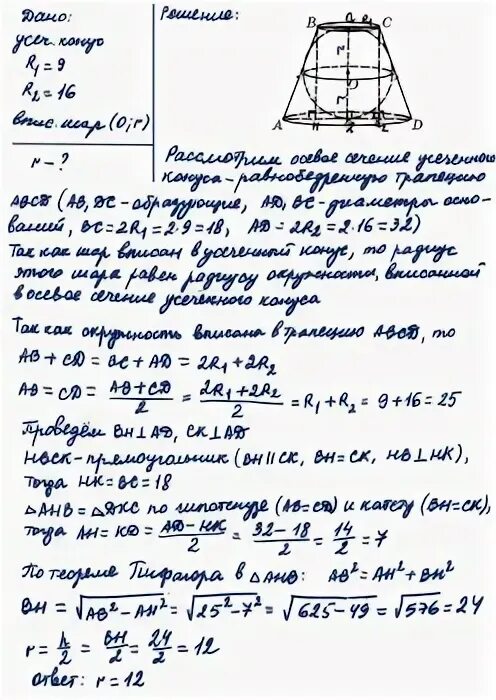 Дано:
усеч. конус
R₁ = 9
R₂ = 16
впис. шар (O; r)
r – ?
Решение:
B C
r
O
r
A H K D
Рассмотрим осевое сечение усеченного
конуса – равнобедренную трапецию
ABCD (AB, DC – образующие, AD, BC – диаметры осно-
ваний, BC = 2R₁ = 2·9 = 18, AD = 2R₂ = 2·16 = 32)
Так как шар вписан в усеченный конус, то радиус
этого шара равен радиусу окружности, вписанной
в осевое сечение усеченного конуса
Так как окружность вписана в трапецию ABCD, то
AB + CD = BC + AD = 2R₁ + 2R₂
AB = CD = (AB + CD)/2 = (2R₁ + 2R₂)/2 = R₁ + R₂ = 9 + 16 = 25
Проведём BH ⊥ AD, CK ⊥ AD
HBCK – прямоугольник (BH ∥ CK, BH = CK, HB ⊥ HK),
тогда HK = BC = 18
△AHB = △DKC по гипотенузе (AB = CD) и катету (BH = CK),
тогда AH = KD = (AD – HK)/2 = (32 – 18)/2 = 14/2 = 7
По теореме Пифагора в △AHB: AB² = AH² + BH²
BH = √(AB² – AH²) = √(25² – 7²) = √(625 – 49) = √576 = 24
r = h/2 = BH/2 = 24/2 = 12
ответ: r = 12